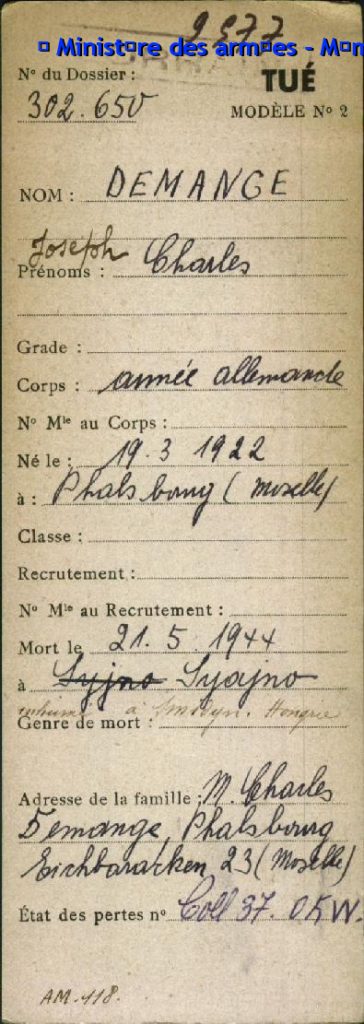 2977
¤ Minist¤re des arm¤es - M¤n
N° du Dossier :
302.650
TUÉ
MODÈLE N° 2
NOM : DEMANGE
Joseph
Prénoms : Charles
Grade :
Corps : armée allemande
N° Mle au Corps :
Né le : 19.3 1922
à : Phalsbourg (Moselle)
Classe :
Recrutement :
N° Mle au Recrutement :
Mort le 21.5.1944
à Syjno Syajno
inhumé à Hongrie
Genre de mort :
Adresse de la famille : M. Charles
Demange, Phalsbourg
Eichbaracken 23 (Moselle)
État des pertes n° Coll 37. OKW.
AM.118.